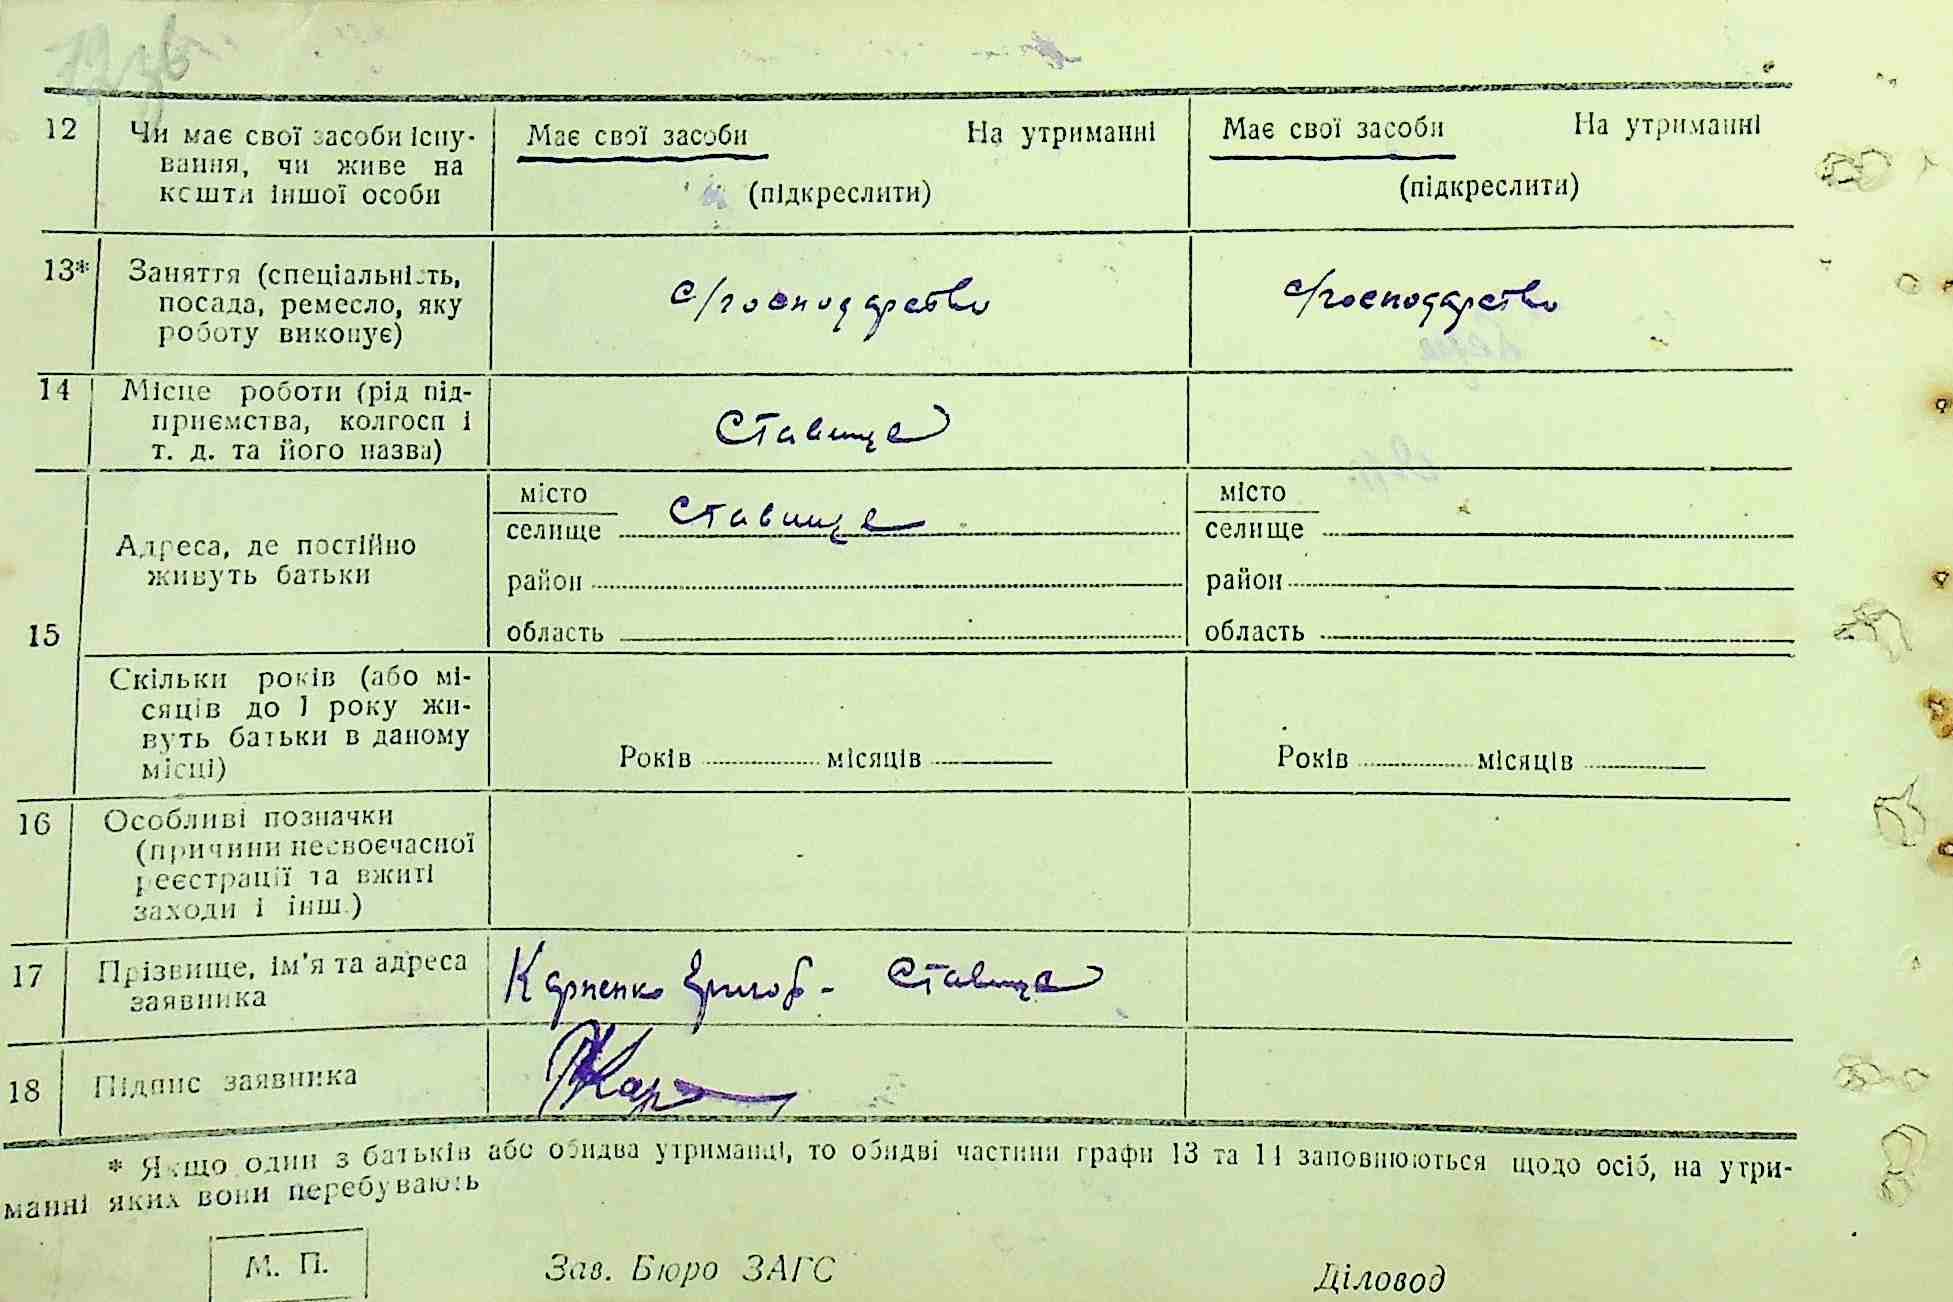 12 Чи має свої засоби існу-
вання, чи живе на
кошти іншої особи
Має свої засоби На утриманні
(підкреслити)
Має свої засоби На утриманні
(підкреслити)
13* Заняття (спеціальність,
посада, ремесло, яку
роботу виконує)
с/господарство
с/господарство
14 Місце роботи (рід під-
приємства, колгосп і
т. д. та його назва)
Ставище
15
Адреса, де постійно
живуть батьки
місто
селище Ставище
район
область
місто
селище
район
область
Скільки років (або мі-
сяців до 1 року жи-
вуть батьки в даному
місці)
Років місяців
Років місяців
16 Особливі позначки
(причини несвоєчасної
реєстрації та вжиті
заходи і інш.)
17 Прізвище, ім'я та адреса
заявника
Карпенко Григор. Ставище
18 Підпис заявника
* Якщо один з батьків або обидва утриманці, то обидві частини графи 13 та 14 заповнюються щодо осіб, на утри-
манні яких вони перебувають
М. П.
Зав. Бюро ЗАГС
Діловод